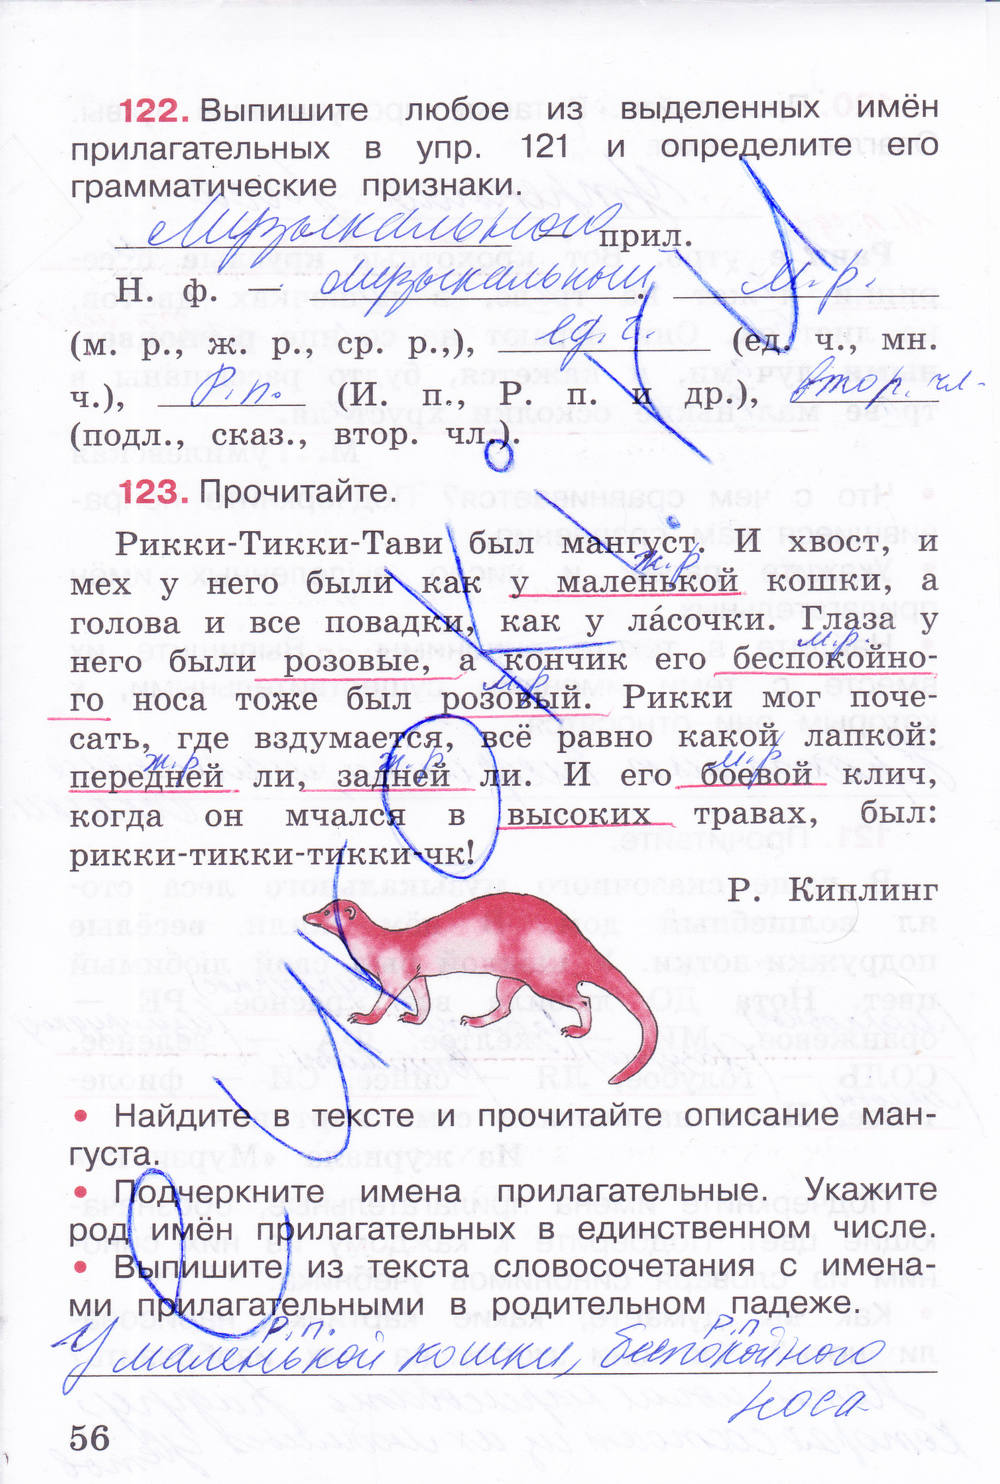 122. Выпишите любое из выделенных имён
прилагательных в упр. 121 и определите его
грамматические признаки.
Музыкального — прил.
Н. ф. — музыкальный. м. р.
(м. р., ж. р., ср. р.,), ед ч (ед. ч., мн.
ч.), Р.п. (И. п., Р. п. и др.), втор. чл.
(подл., сказ., втор. чл.).
123. Прочитайте.
Рикки-Тикки-Тави был мангуст. И хвост, и
ж.р
мех у него были как у маленькой кошки, а
голова и все повадки, как у ла́сочки. Глаза у
м.р.
него были розовые, а кончик его беспокойно-
м.р.
го носа тоже был розовый. Рикки мог поче-
сать, где вздумается, всё равно какой лапкой:
ж.р. ж.р. м.р
передней ли, задней ли. И его боевой клич,
когда он мчался в высоких травах, был:
рикки-тикки-тикки-чк!
Р. Киплинг
• Найдите в тексте и прочитайте описание ман-
густа.
• Подчеркните имена прилагательные. Укажите
род имён прилагательных в единственном числе.
• Выпишите из текста словосочетания с имена-
ми прилагательными в родительном падеже.
Р.п. Р.п
У маленькой кошки, беспокойного
носа
56